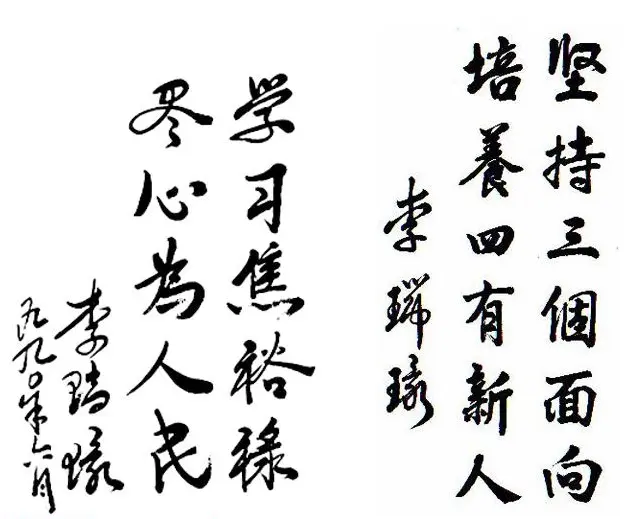 坚持三個面向
培養四有新人
李瑞環
学习焦裕禄
尽心為人民
李瑞環
一九九〇年六月